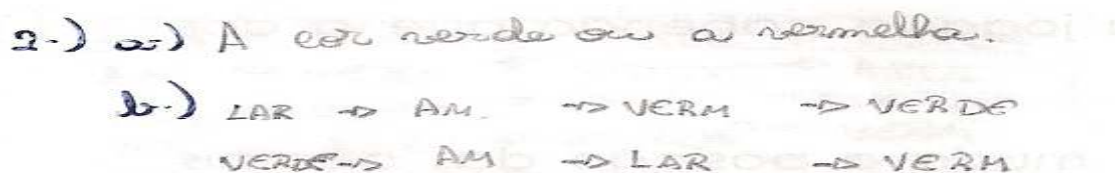 2-) a-) A cor verde ou a vermelha.
b-) LAR → AM. → VERM → VERDE
VERDE → AM → LAR → VERM